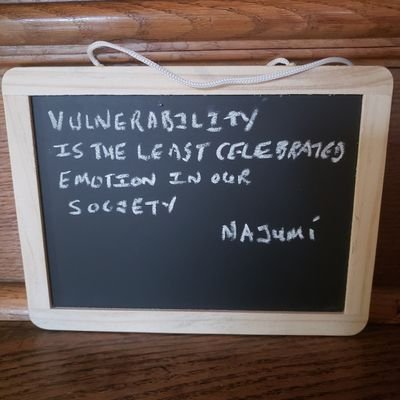 VULNERABILITY
IS THE LEAST CELEBRATED
EMOTION IN OUR
SOCIETY
NAJUMI